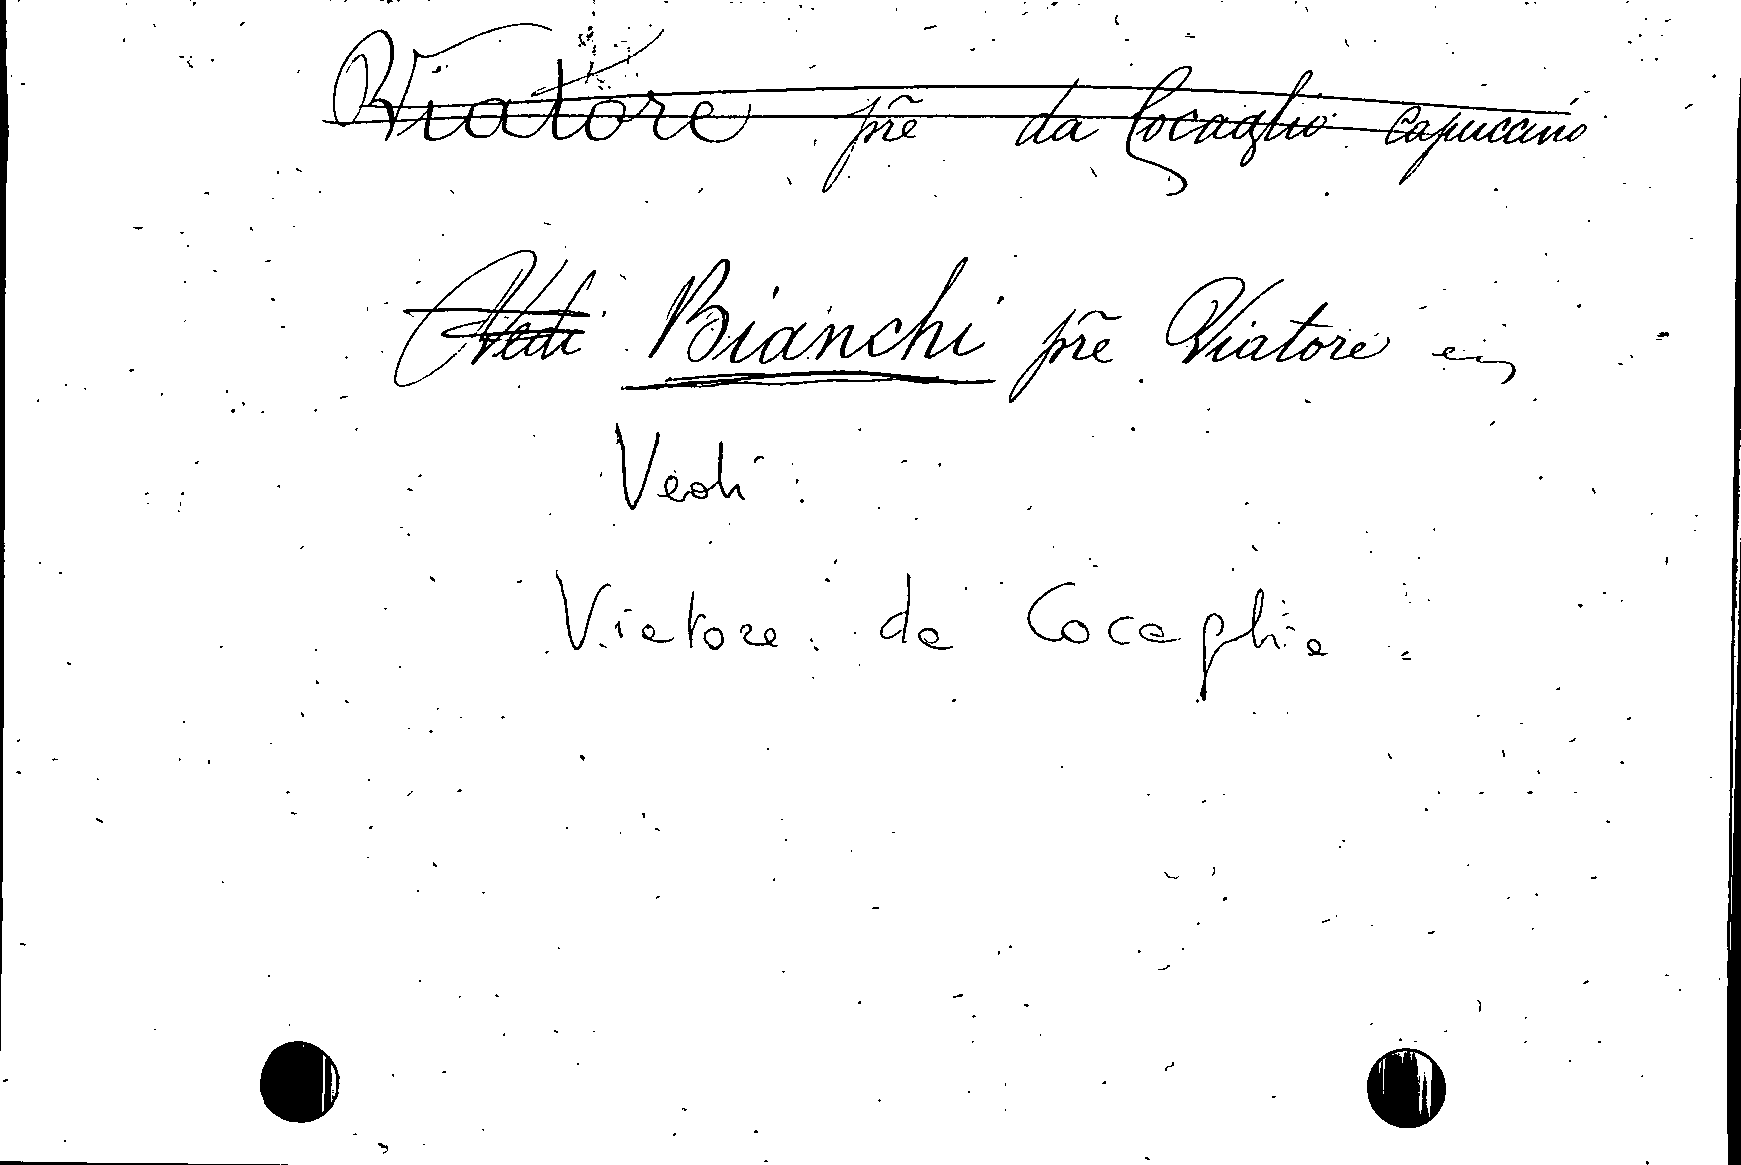 Viatore pr̃e da Cocaglio capuccino
Vedi Bianchi pr̃e Viatore
Vedi:
Viatore da Cocaglio